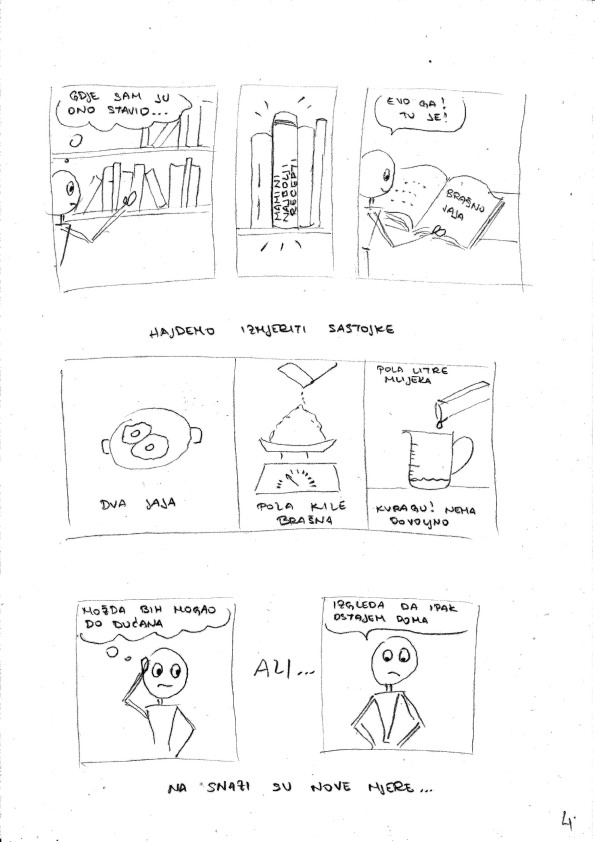 GDJE SAM JU
ONO STAVIO...
MAMINI
NAJBOLJI
RECEPTI
EVO GA!
TU JE!
BRAŠNO
JAJA
HAJDEMO IZMJERITI SASTOJKE
DVA JAJA
POLA KILE
BRAŠNA
POLA LITRE
MLIJEKA
KVRAGU! NEMA
DOVOLJNO
MOŽDA BIH MOGAO
DO DUĆANA
ALI...
IZGLEDA DA IPAK
OSTAJEM DOMA
NA SNAZI SU NOVE MJERE...
4.